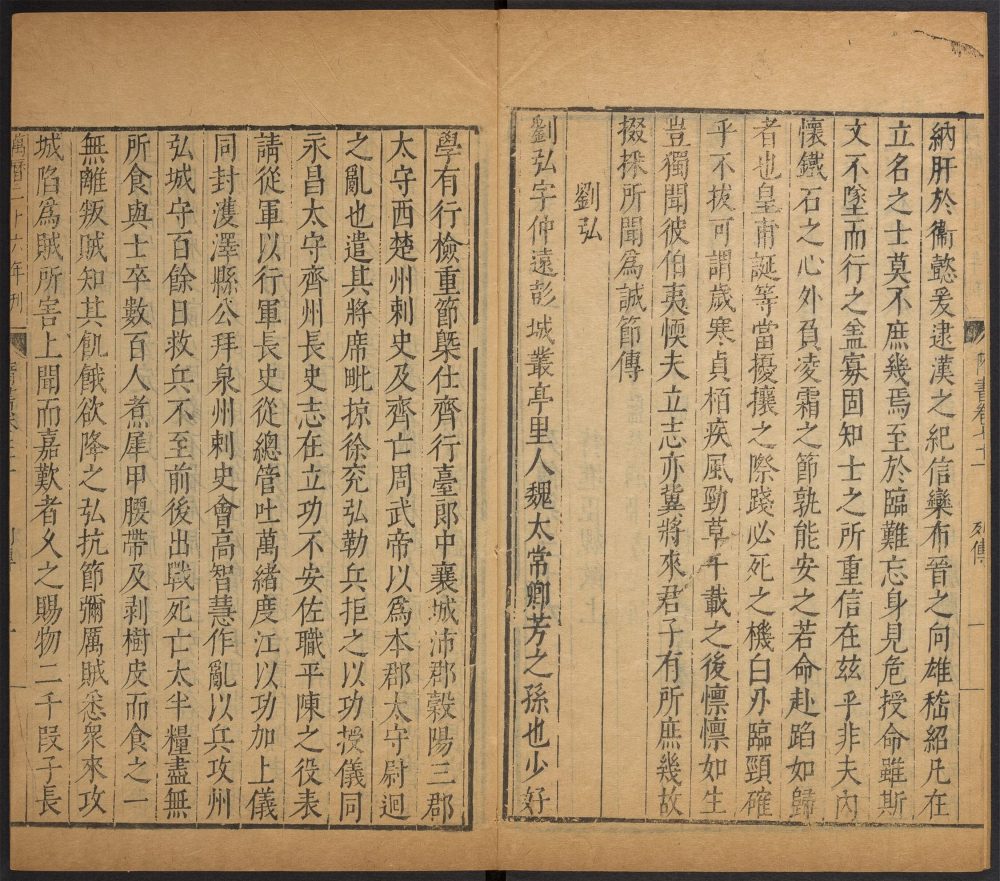 隋書卷七十一 列傳 一
納肝於衞懿爰逮漢之紀信欒布晉之向雄嵇紹凡在
立名之士莫不庶幾焉至於臨難忘身見危授命雖斯
文不墜而行之盖寡固知士之所重信在兹乎非夫內
懷鐵石之心外負凌霜之節孰能安之若命赴蹈如歸
者也皇甫誕等當擾攘之際踐必死之機白刃臨頸確
乎不拔可謂歲寒貞栢疾風勁草千載之後懍懍如生
豈獨聞彼伯夷懦夫立志亦冀將來君子有所庶幾故
掇採所聞爲誠節傳
劉弘
劉弘字仲遠彭城叢亭里人魏太常卿芳之孫也少好
學有行檢重節槩仕齊行臺郎中襄城沛郡穀陽三郡
太守西楚州刺史及齊亡周武帝以爲本郡太守尉迥
之亂也遣其將席毗掠徐兖弘勒兵拒之以功授儀同
永昌太守齊州長史志在立功不安佐職平陳之役表
請從軍以行軍長史從總管吐萬緒度江以功加上儀
同封濩澤縣公拜泉州刺史會高智慧作亂以兵攻州
弘城守百餘日救兵不至前後出戰死亡太半糧盡無
所食與士卒數百人煮犀甲腰帶及剥樹皮而食之一
無離叛賊知其飢餓欲降之弘抗節彌厲賊悉衆來攻
城陷爲賊所害上聞而嘉歎者久之賜物二千段子長
萬曆二十六年刊